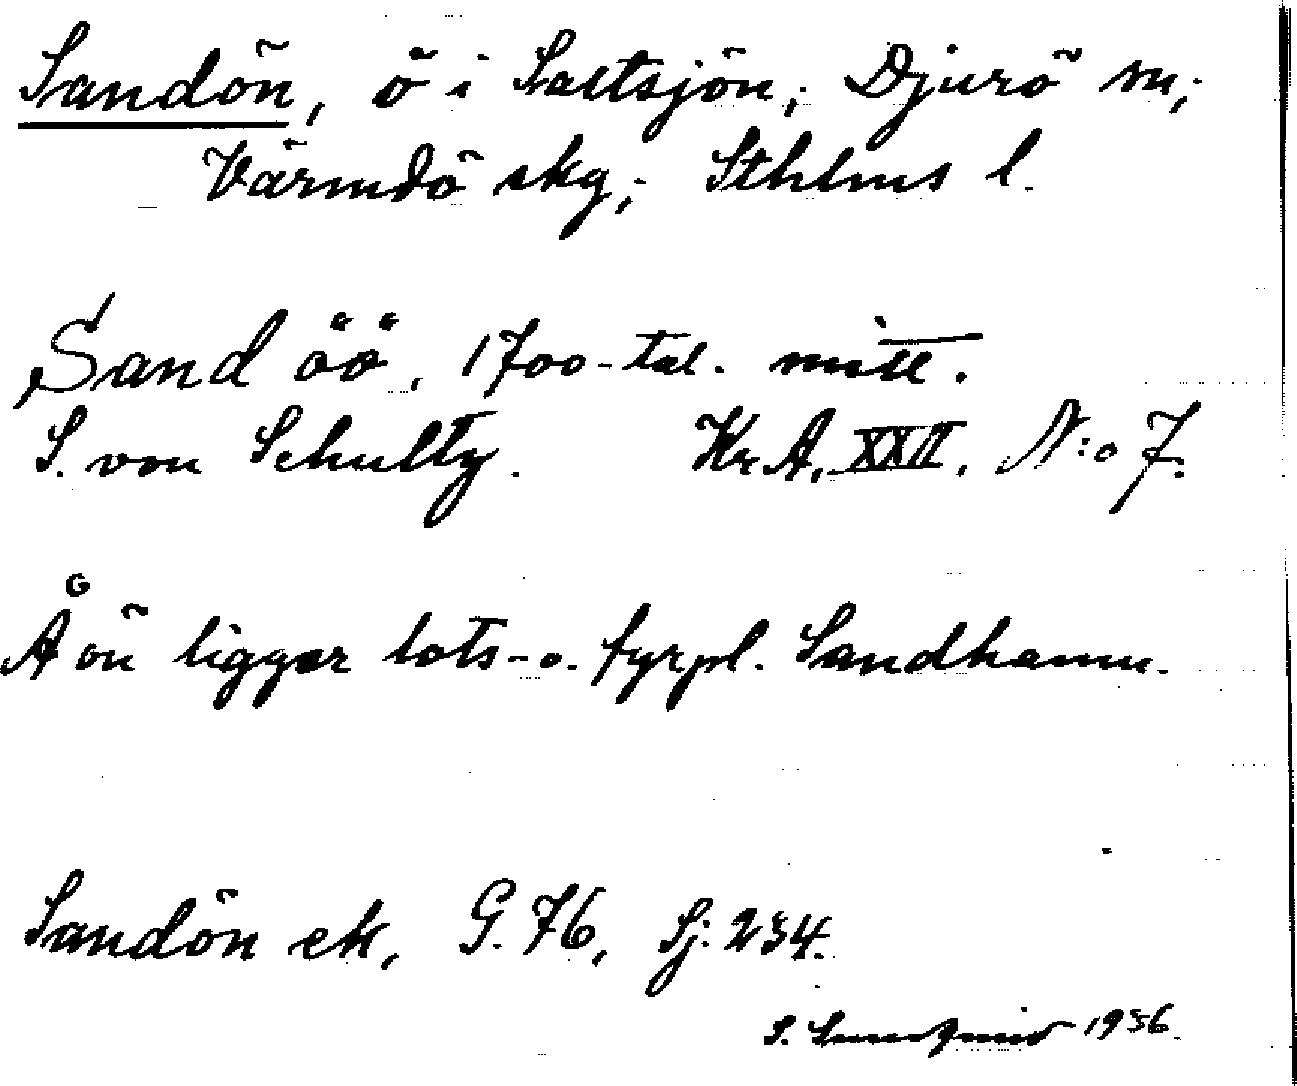 Sandön, ö i Saltsjön; Djurö sn;
Värmdö skg; Sthlms l.
Sand öö, 1700-tal. mitt.
S. von Schultz. Kr. A. XXII. N:o 7.
Å ön ligger lots- o. fyrpl. Sandhamn.
Sandön ek, G. 76, Sj. 234.
S. 1936.